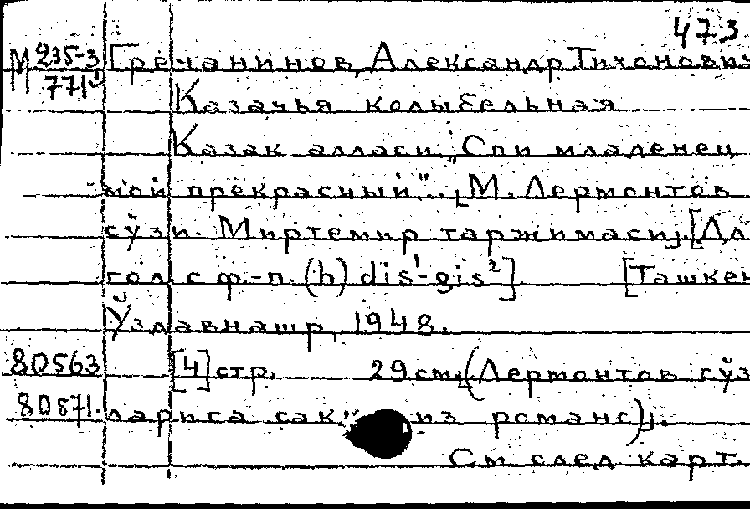 473
М 935-3 Гречанинов, Александр Тихонович
771
Казачья колыбельная
Казак алласи. "Спи младенец
мой прекрасный"... [М. Лермонтов
сўзи. Миртемир таржимаси], [Дл
гол. с ф.-п. (h) dis¹-gis²] [Ташкен
Ўздавнашр, 1948.
80563 [4] стр. 29 см. (Лермонтов сўз
80571. лариса из романс)].
См след карт.